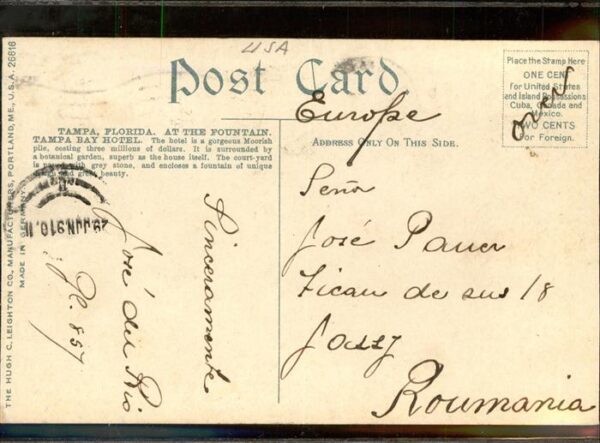 USA
Post Card
Europe
Place the Stamp Here
ONE CENT
for United States
and Island Possessions
Cuba, Canada and
Mexico.
TWO CENTS
For Foreign.
TAMPA, FLORIDA. AT THE FOUNTAIN.
TAMPA BAY HOTEL. The hotel is a gorgeous Moorish
pile, costing three millions of dollars. It is surrounded
by a botanical garden, superb as the house itself. The court-yard
is paved with gray stone, and encloses a fountain of unique
and great beauty.
ADDRESS ONLY ON THIS SIDE.
THE HUGH C. LEIGHTON CO., MANUFACTURERS, PORTLAND, ME., U.S.A. 26816
MADE IN GERMANY
29 JUN 910
Sinceramente
José del Rio
857
Señor
José Pauer
Ticau de sus 18
Jassy
Roumania